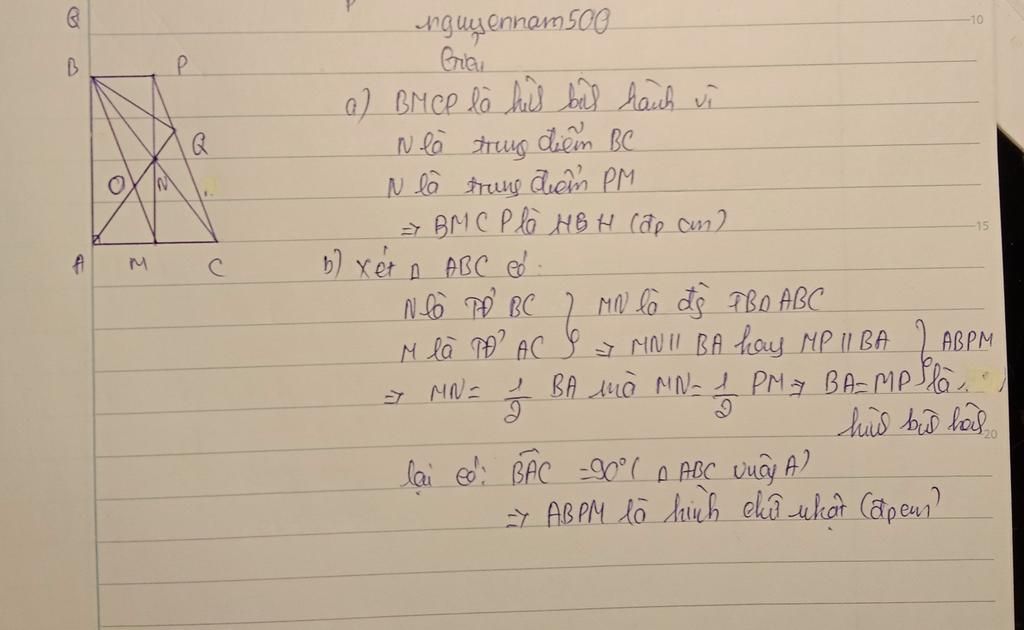 P
Q
10
nguyennam500
Giải
B P
a) BMCP là hình bình hành vì
Q
N là trung điểm BC
O N
N là trung điểm PM
⇒ BMCP là HBH (đpcm)
15
A M C
b) Xét Δ ABC có:
N là TĐ BC } MN là đg TBΔABC
M là TĐ AC } ⇒ MN // BA hay MP // BA } ABPM
⇒ MN = 1/2 BA mà MN = 1/2 PM ⇒ BA = MP } là
hình bình hành
20
lại có: BÂC = 90° (Δ ABC vuông A)
⇒ ABPM là hình chữ nhật (đpcm)